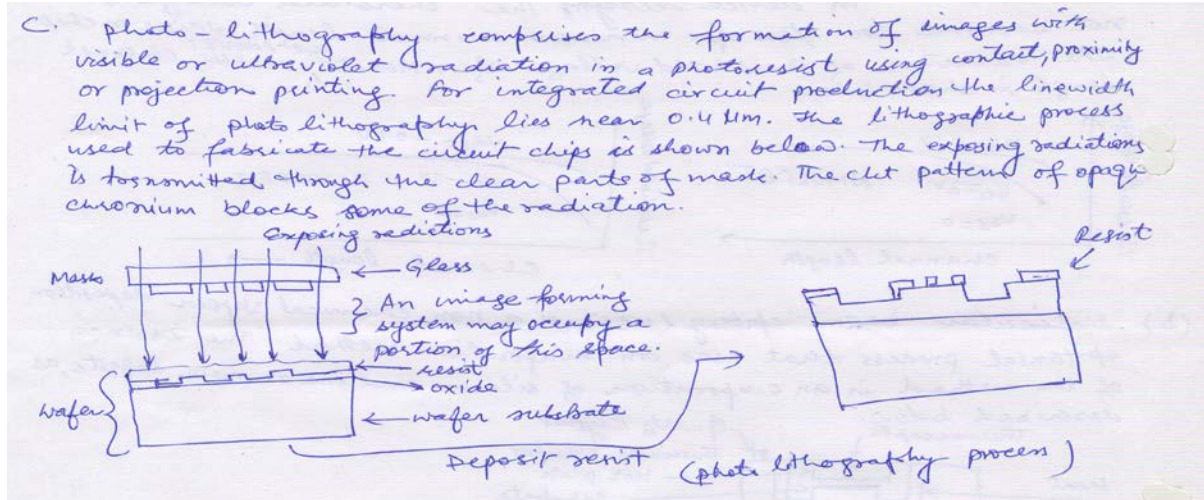 C. photo-lithography comprises the formation of images with
visible or ultraviolet radiation in a photoresist using contact, proximity
or projection printing. For integrated circuit production the linewidth
limit of photo lithography lies near 0.4 μm. The lithographic process
used to fabricate the circuit chips is shown below. The exposing radiations
is transmitted through the clear parts of mask. The ckt pattern of opaque
chromium blocks some of the radiation.
Exposing radiations
Mask
Glass
An image forming
system may occupy a
portion of this space.
resist
oxide
wafer
wafer substrate
Deposit resist
Resist
(photo lithography process)